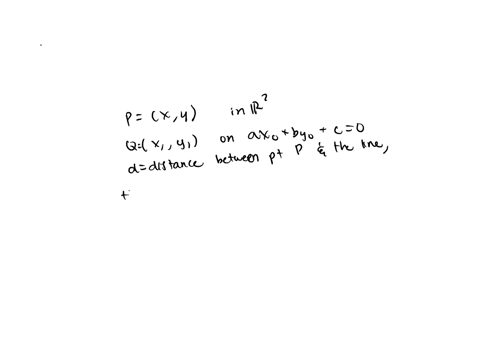 P = (x, y) in ℝ²
Q = (x₁, y₁) on ax₀ + by₀ + c = 0
d = distance between pt P & the line,
t